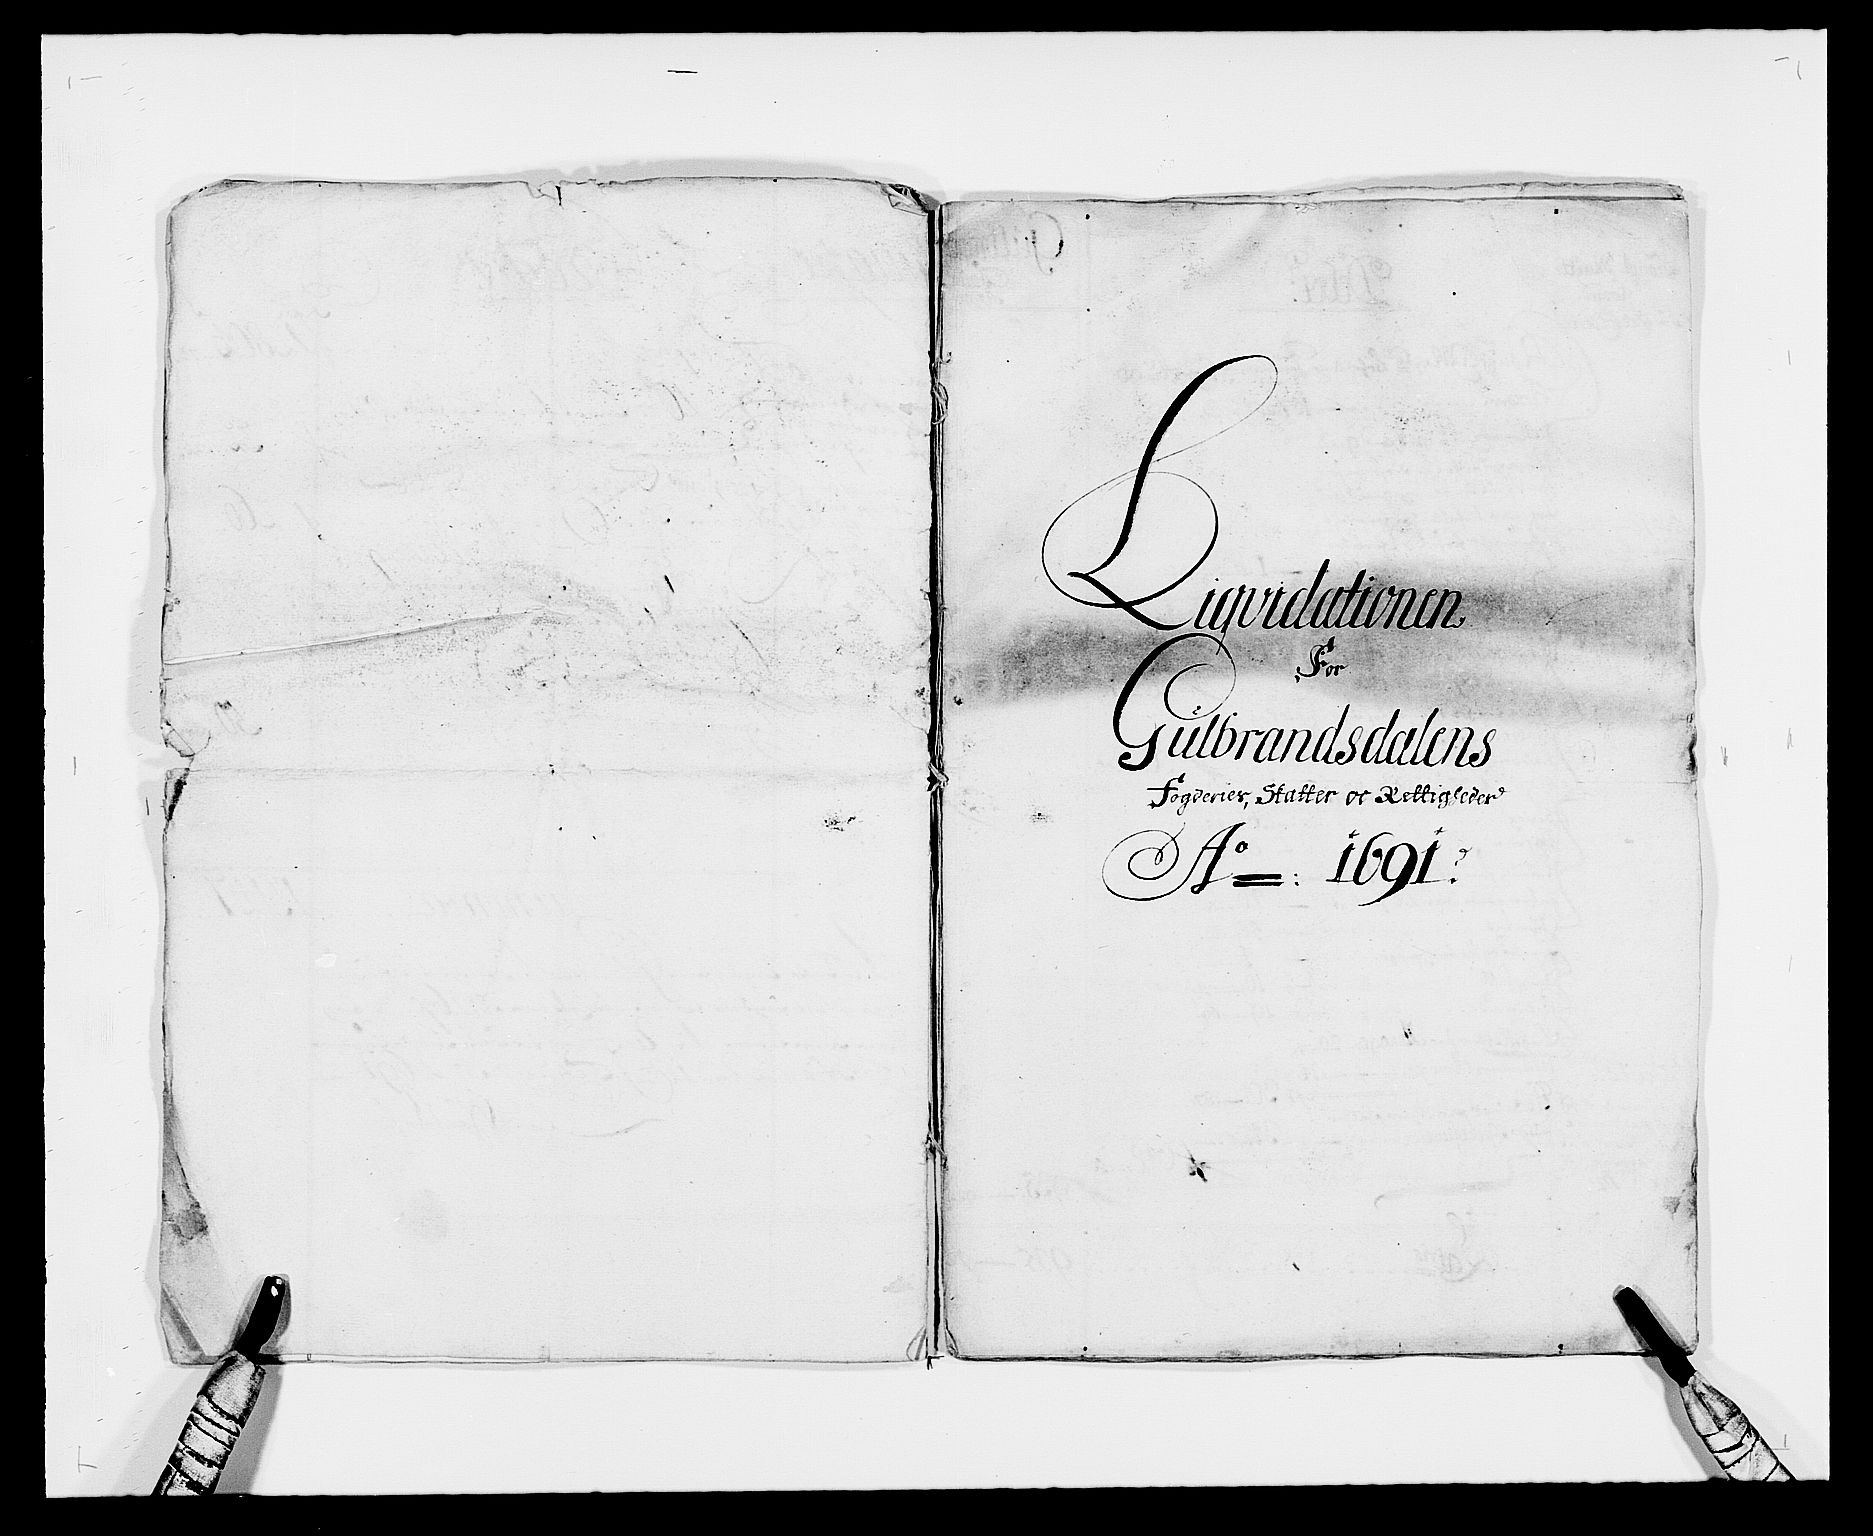 Liqvidationen
For
Gulbrandsdalens
Fogderier, Skatter oc Rettigheder
Ao: 1691.